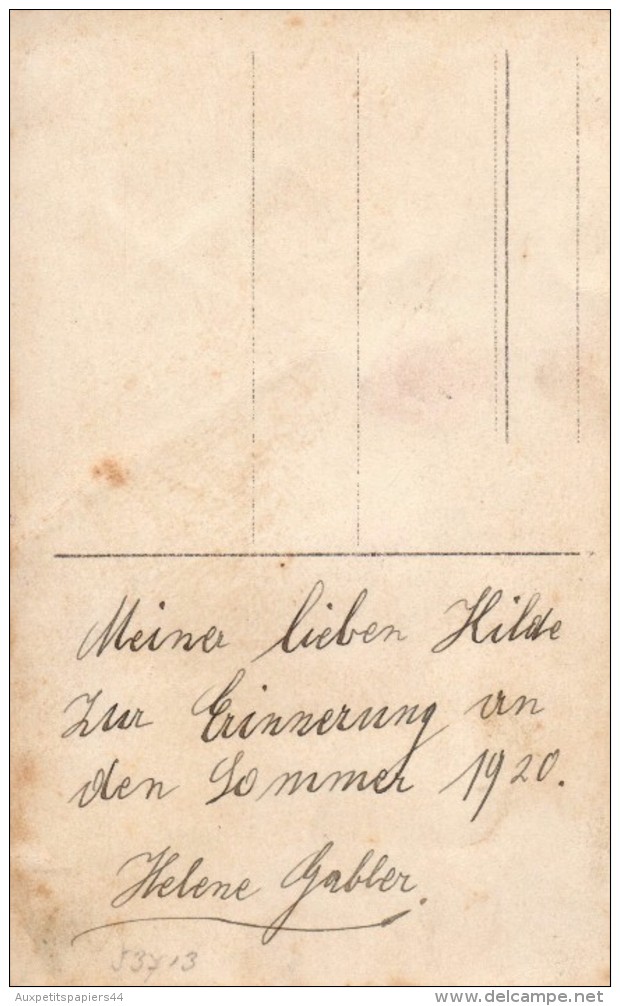 Meiner lieben Hilde
Zur Erinnerung an
den Sommer 1920.
Helene Gabler.
Auxpetitspapiers44
delcampe.net